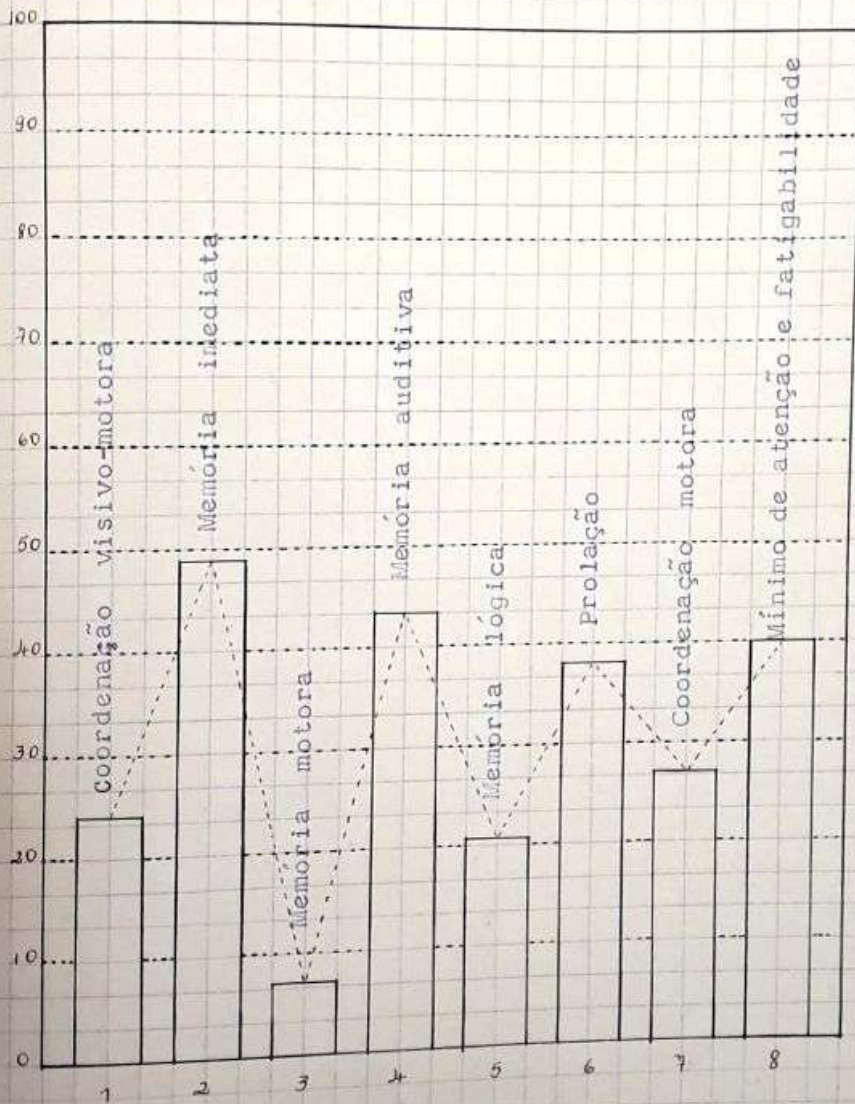 100
90
80
70
60
50
40
30
20
10
0
Coordenação visivo-motora
Memória imediata
Memoria motora
Memória auditiva
Memoria lógica
Prolação
Coordenação motora
Mínimo de atenção e fatigabilidade
1 2 3 4 5 6 7 8